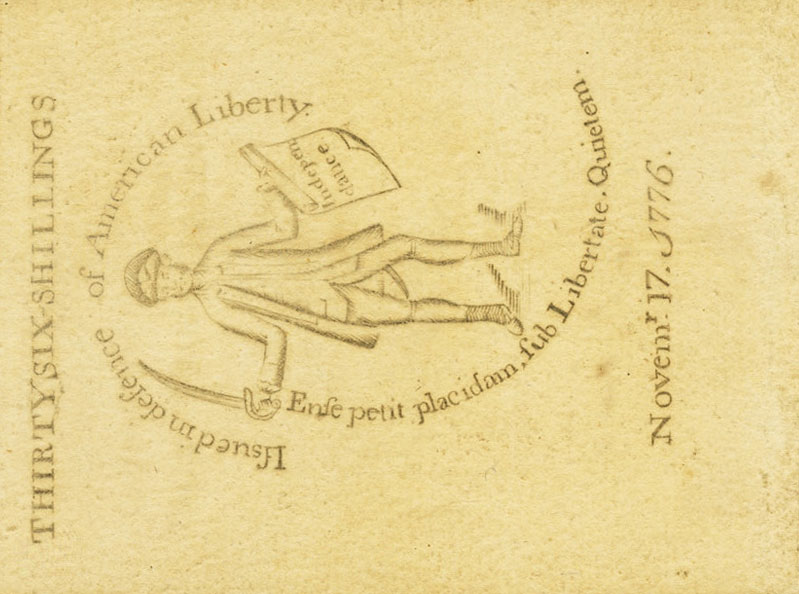 THIRTY SIX-SHILLINGS
Iſsued in defence of American Liberty.
Indepen
dance
Enſe petit placidam, ſub Libertate. Quietem.
Novemʳ. 17. 1776.